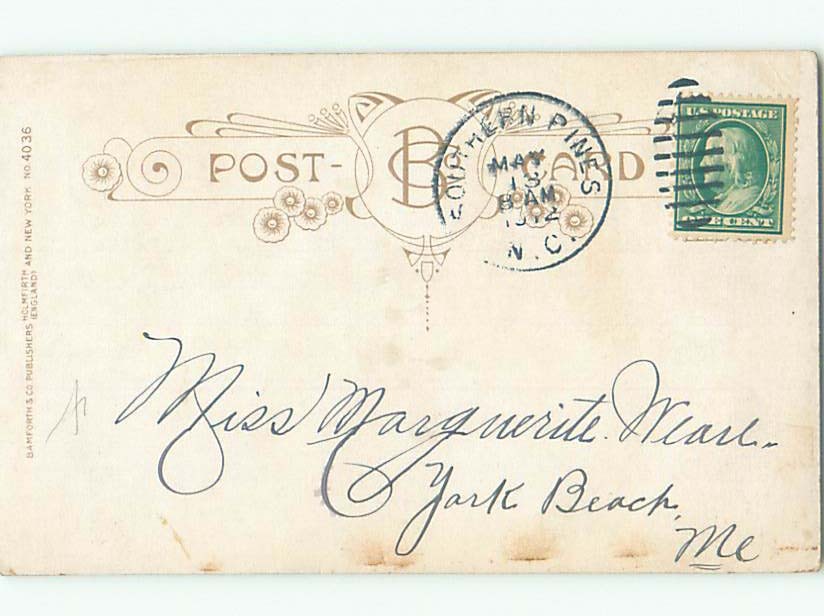 POST- CB CARD
SOUTHERN PINES
MAY
13
8 AM
1912
N.C.
U.S. POSTAGE
ONE CENT
BAMFORTH & CO. PUBLISHERS HOLMFIRTH AND NEW YORK. NO. 4036
(ENGLAND)
Miss Marguerite.
York Beach,
Me